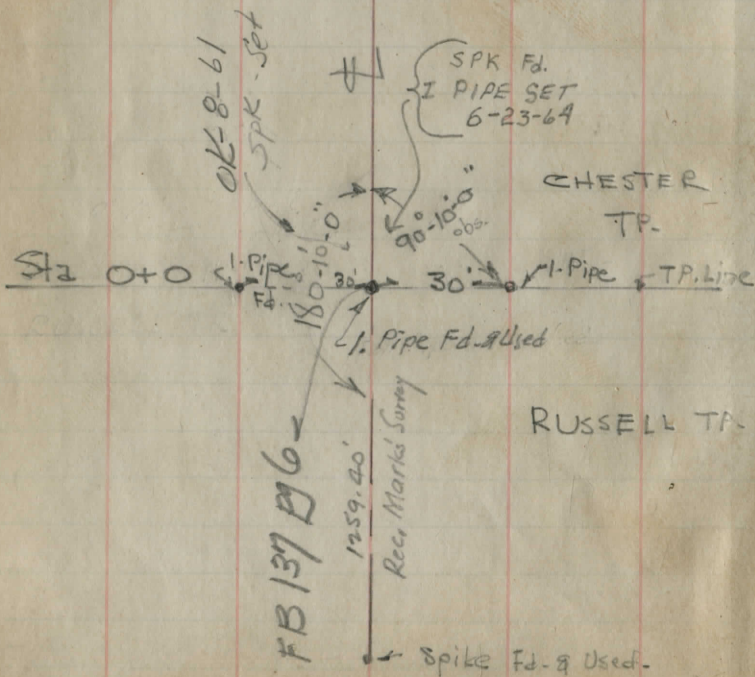 OK-8-61
SPK-Set
SPK Fd.
I PIPE SET
6-23-64
CHESTER
TP.
90°-10'-0"
obs.
180°-10'-0"
Sta 0+0
1-Pipe
Fd.
30'
30'
1-Pipe
TP. Line
1. Pipe Fd. & Used
RUSSELL TP.
FB 137 Pg 6
1259.40'
Rec. Marks' Survey
Spike Fd. & Used.